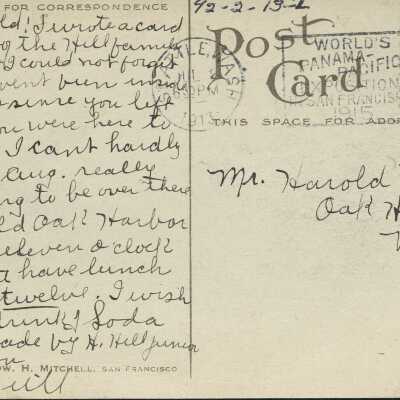 FOR CORRESPONDENCE
92-2-13-2
ld! I wrote a card
the Hill family
I could not forget
went
since you left
ou were here to
I can't hardly
Aug. really
ng to be over there
ld Oak Harbor
eleven o'clock
have lunch
twelve. I wish
drink of Soda
ade by H. Hill junior
ou
W. H. MITCHELL, SAN FRANCISCO
ill
Post
Card
TLE, WASH
JUL
30 PM
1913
WORLD'S
PANAMA-
PACIFIC
EXPOSITION
SAN FRANCISCO
1915
THIS SPACE FOR ADDR
Mr. Harold
Oak H